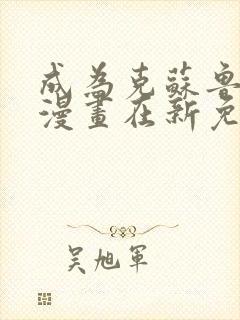 成為克蘇魯
漫畫在新免
吴旭軍